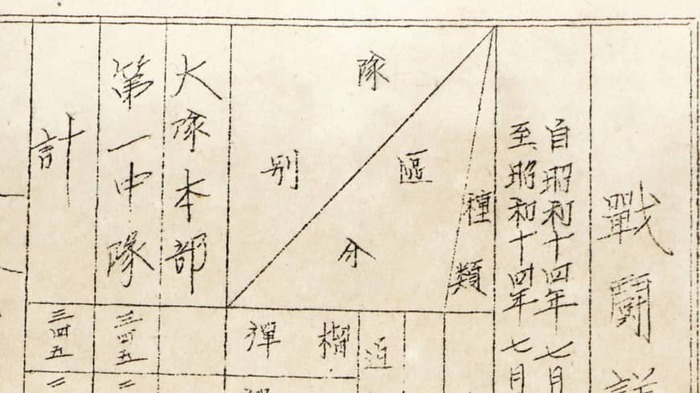 戰鬪詳
自昭和十四年七月
至昭和十四年七月
種類
區分
隊別
榴
彈
近
大隊本部
第一中隊
三四五
二
計
三四五
二